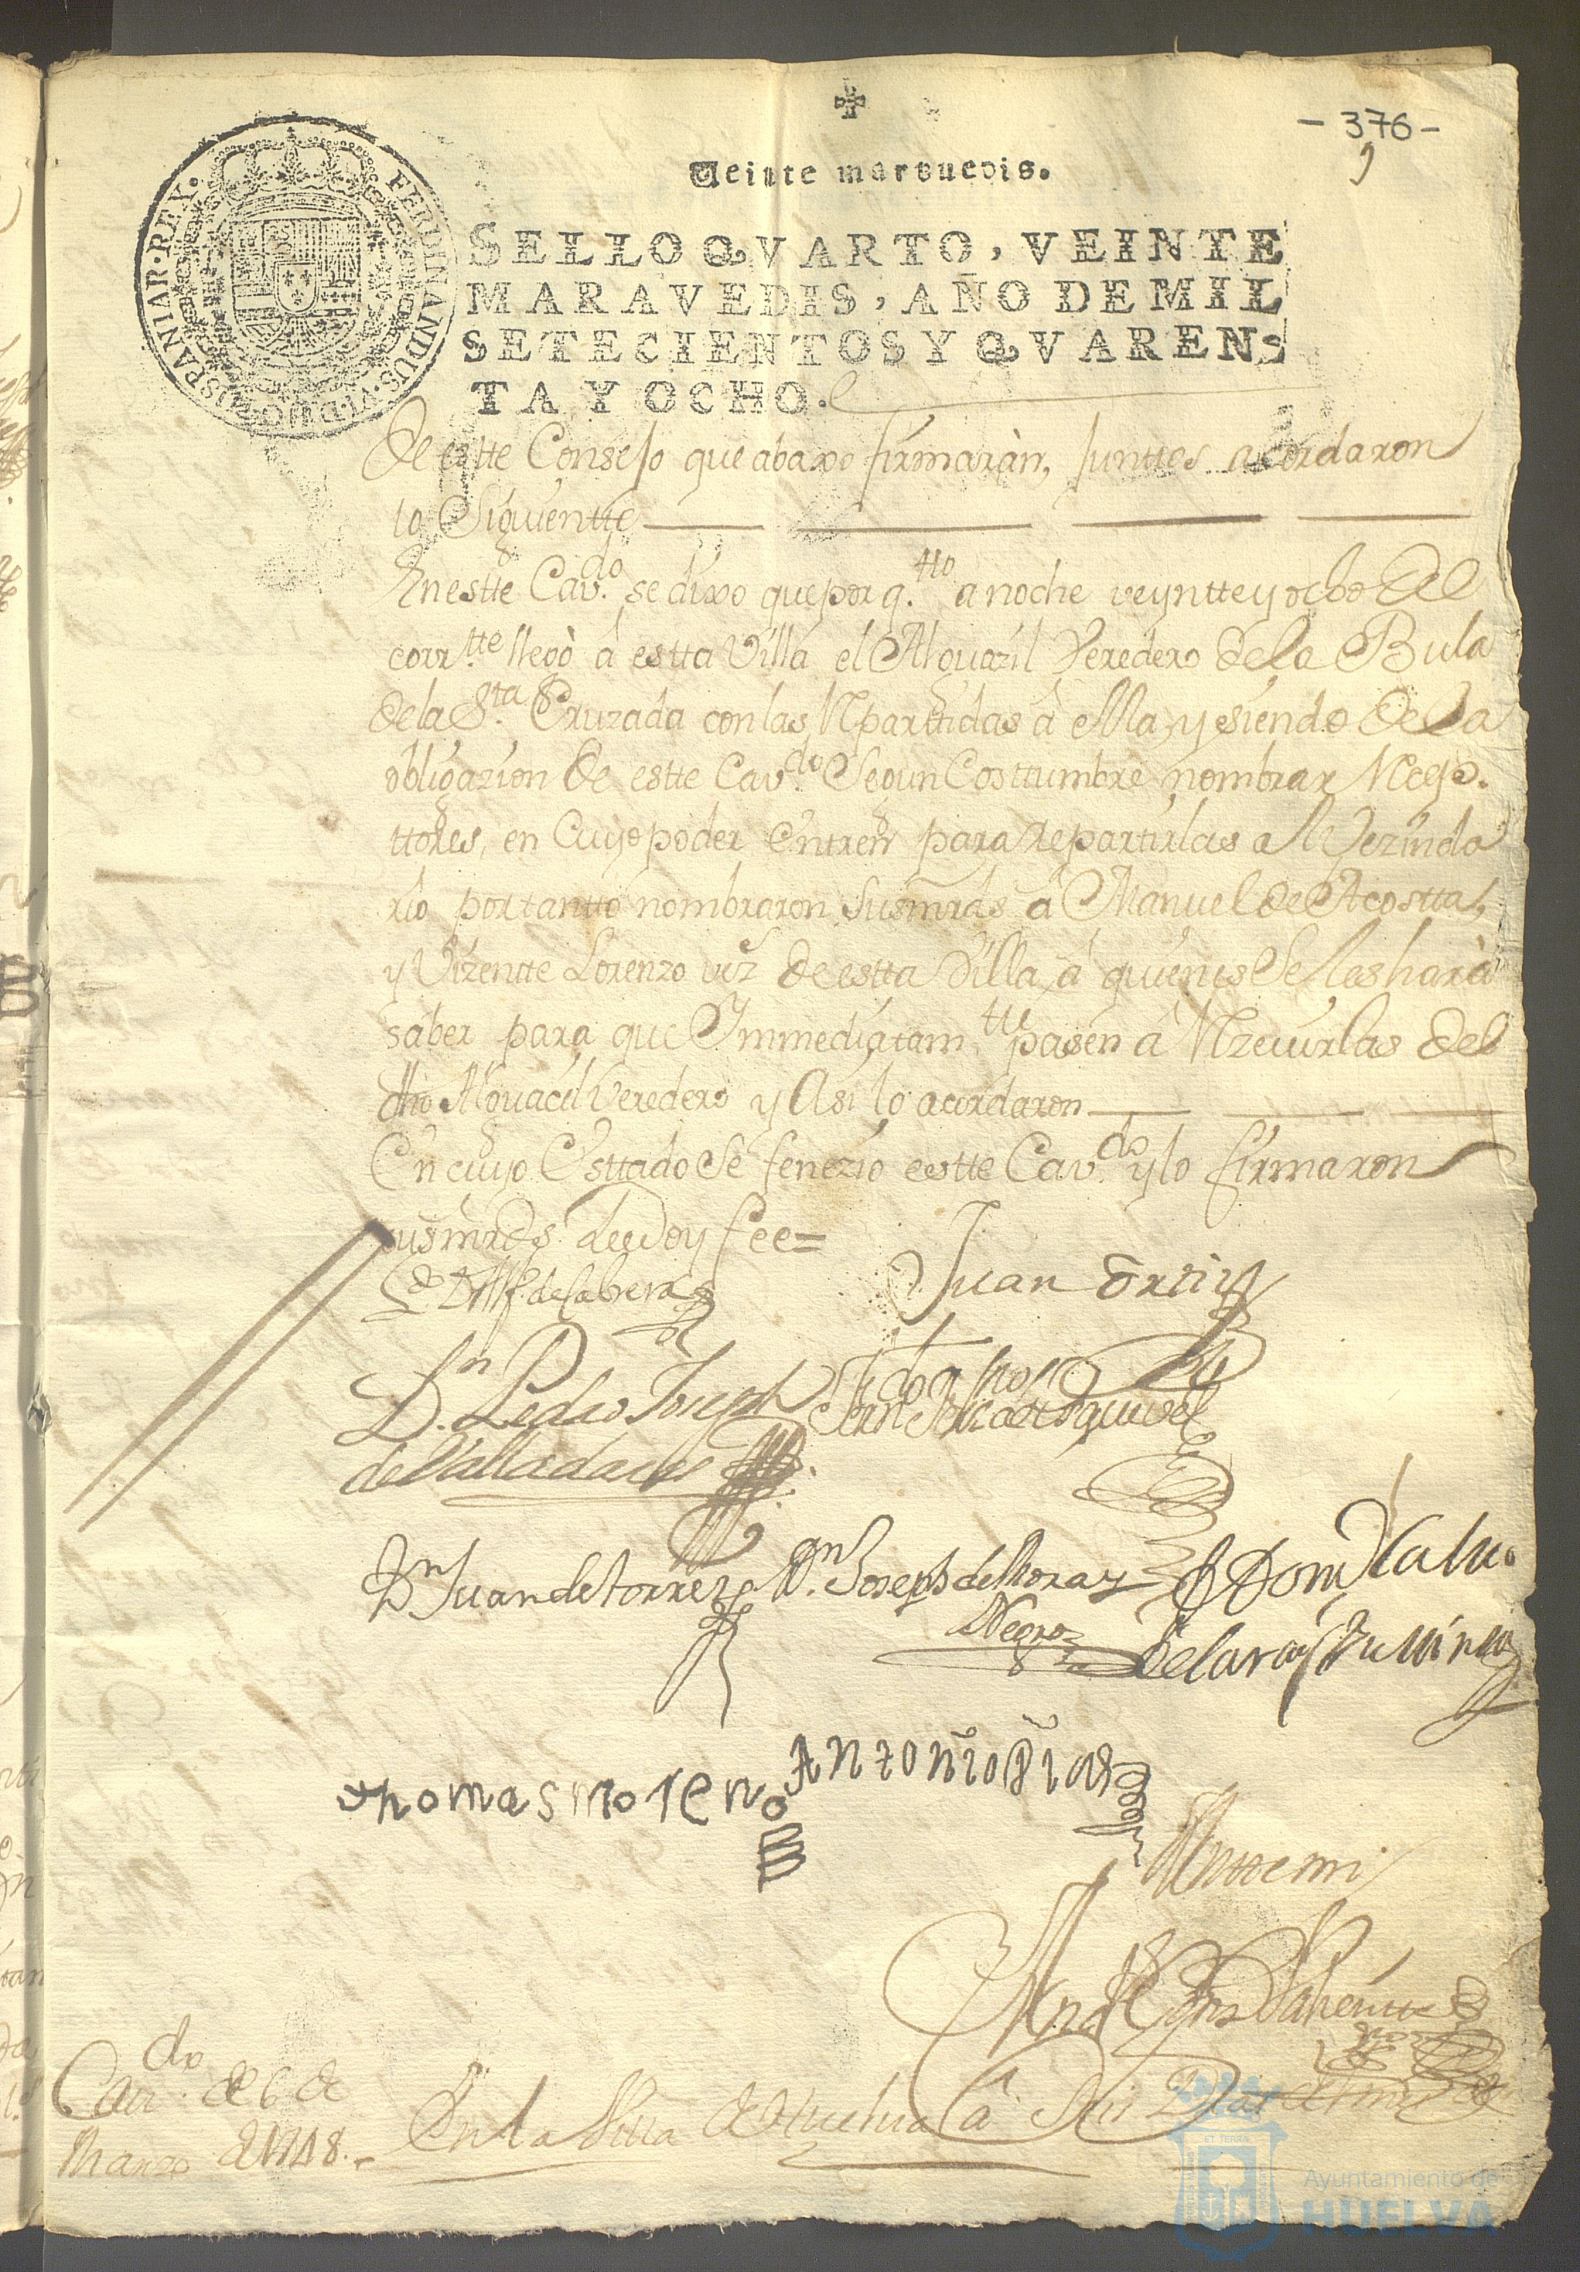 - 376 -
9
Veinte maravedis.
SELLO QVARTO, VEINTE
MARAVEDIS, AÑO DE MIL
SETECIENTOS Y QVAREN-
TA Y OCHO.
FERDINANDUS·VI·D·G·HISPANIAR·REX·
de estte Consejo que abaxo firmaràn, Junttos acordaron
lo Siguientte
En estte Cav.do se dixo que por q.tto anoche veyntte y ocho del
corr.tte llegò à estta Villa el Alguazil Veredero de la Bula
de la S.ta Cruzada con las Rparttidas à ella, y siendo de la
obligazion de estte Cav.do Segun Costtumbre nombrar Rcep-
ttores, en Cuyo poder entren para repartirlas al Vezinda
rio por tantto nombraron Susmrds à Manuel de Acostta,
y Vizentte Lorenzo vez.s de estta Villa, à quienes Se les harà
saber para que Immediatam.tte pasen à Rzeuirlas del
dho Alguacil Veredero y Asi lo acordaron
En cuyo Esttado Se fenezio estte Cav.do y lo firmaron
susmrds de que doy fee=
Cabrera
Juan Ortiz
D.n Pedro Joseph
de Valladares
Esquivel
D.n Juan de torres
D.n Joseph de Mora y
Negro
Thomas moreno
Antonio Dias
Antte mi
Cav.do de 6 de
Marzo de 1748.-
En la Villa de Huelva à Seis Dias del mes de
Ayuntamiento de
HUELVA